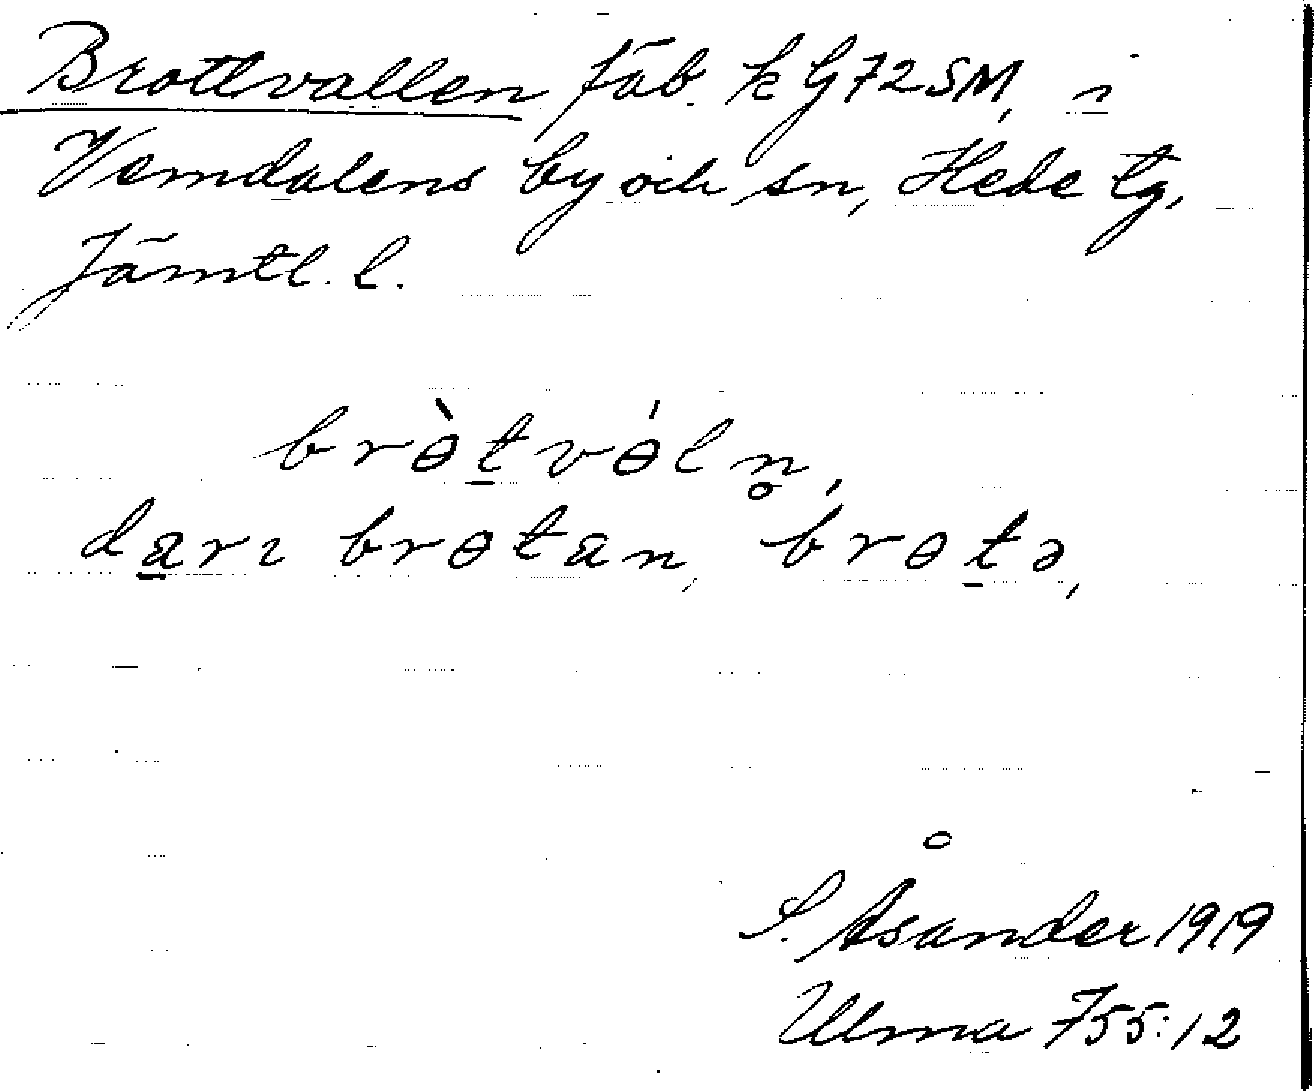 Brottvallen fäb. k G72SM, i
Vemdalens by och sn, Hede tg,
Jämtl. l.
brɵ̀t̲vɵ́ln̥,
da̲rı brɵtan, brɵt̲ə,
S. Åsander 1919
Ulma 755:12